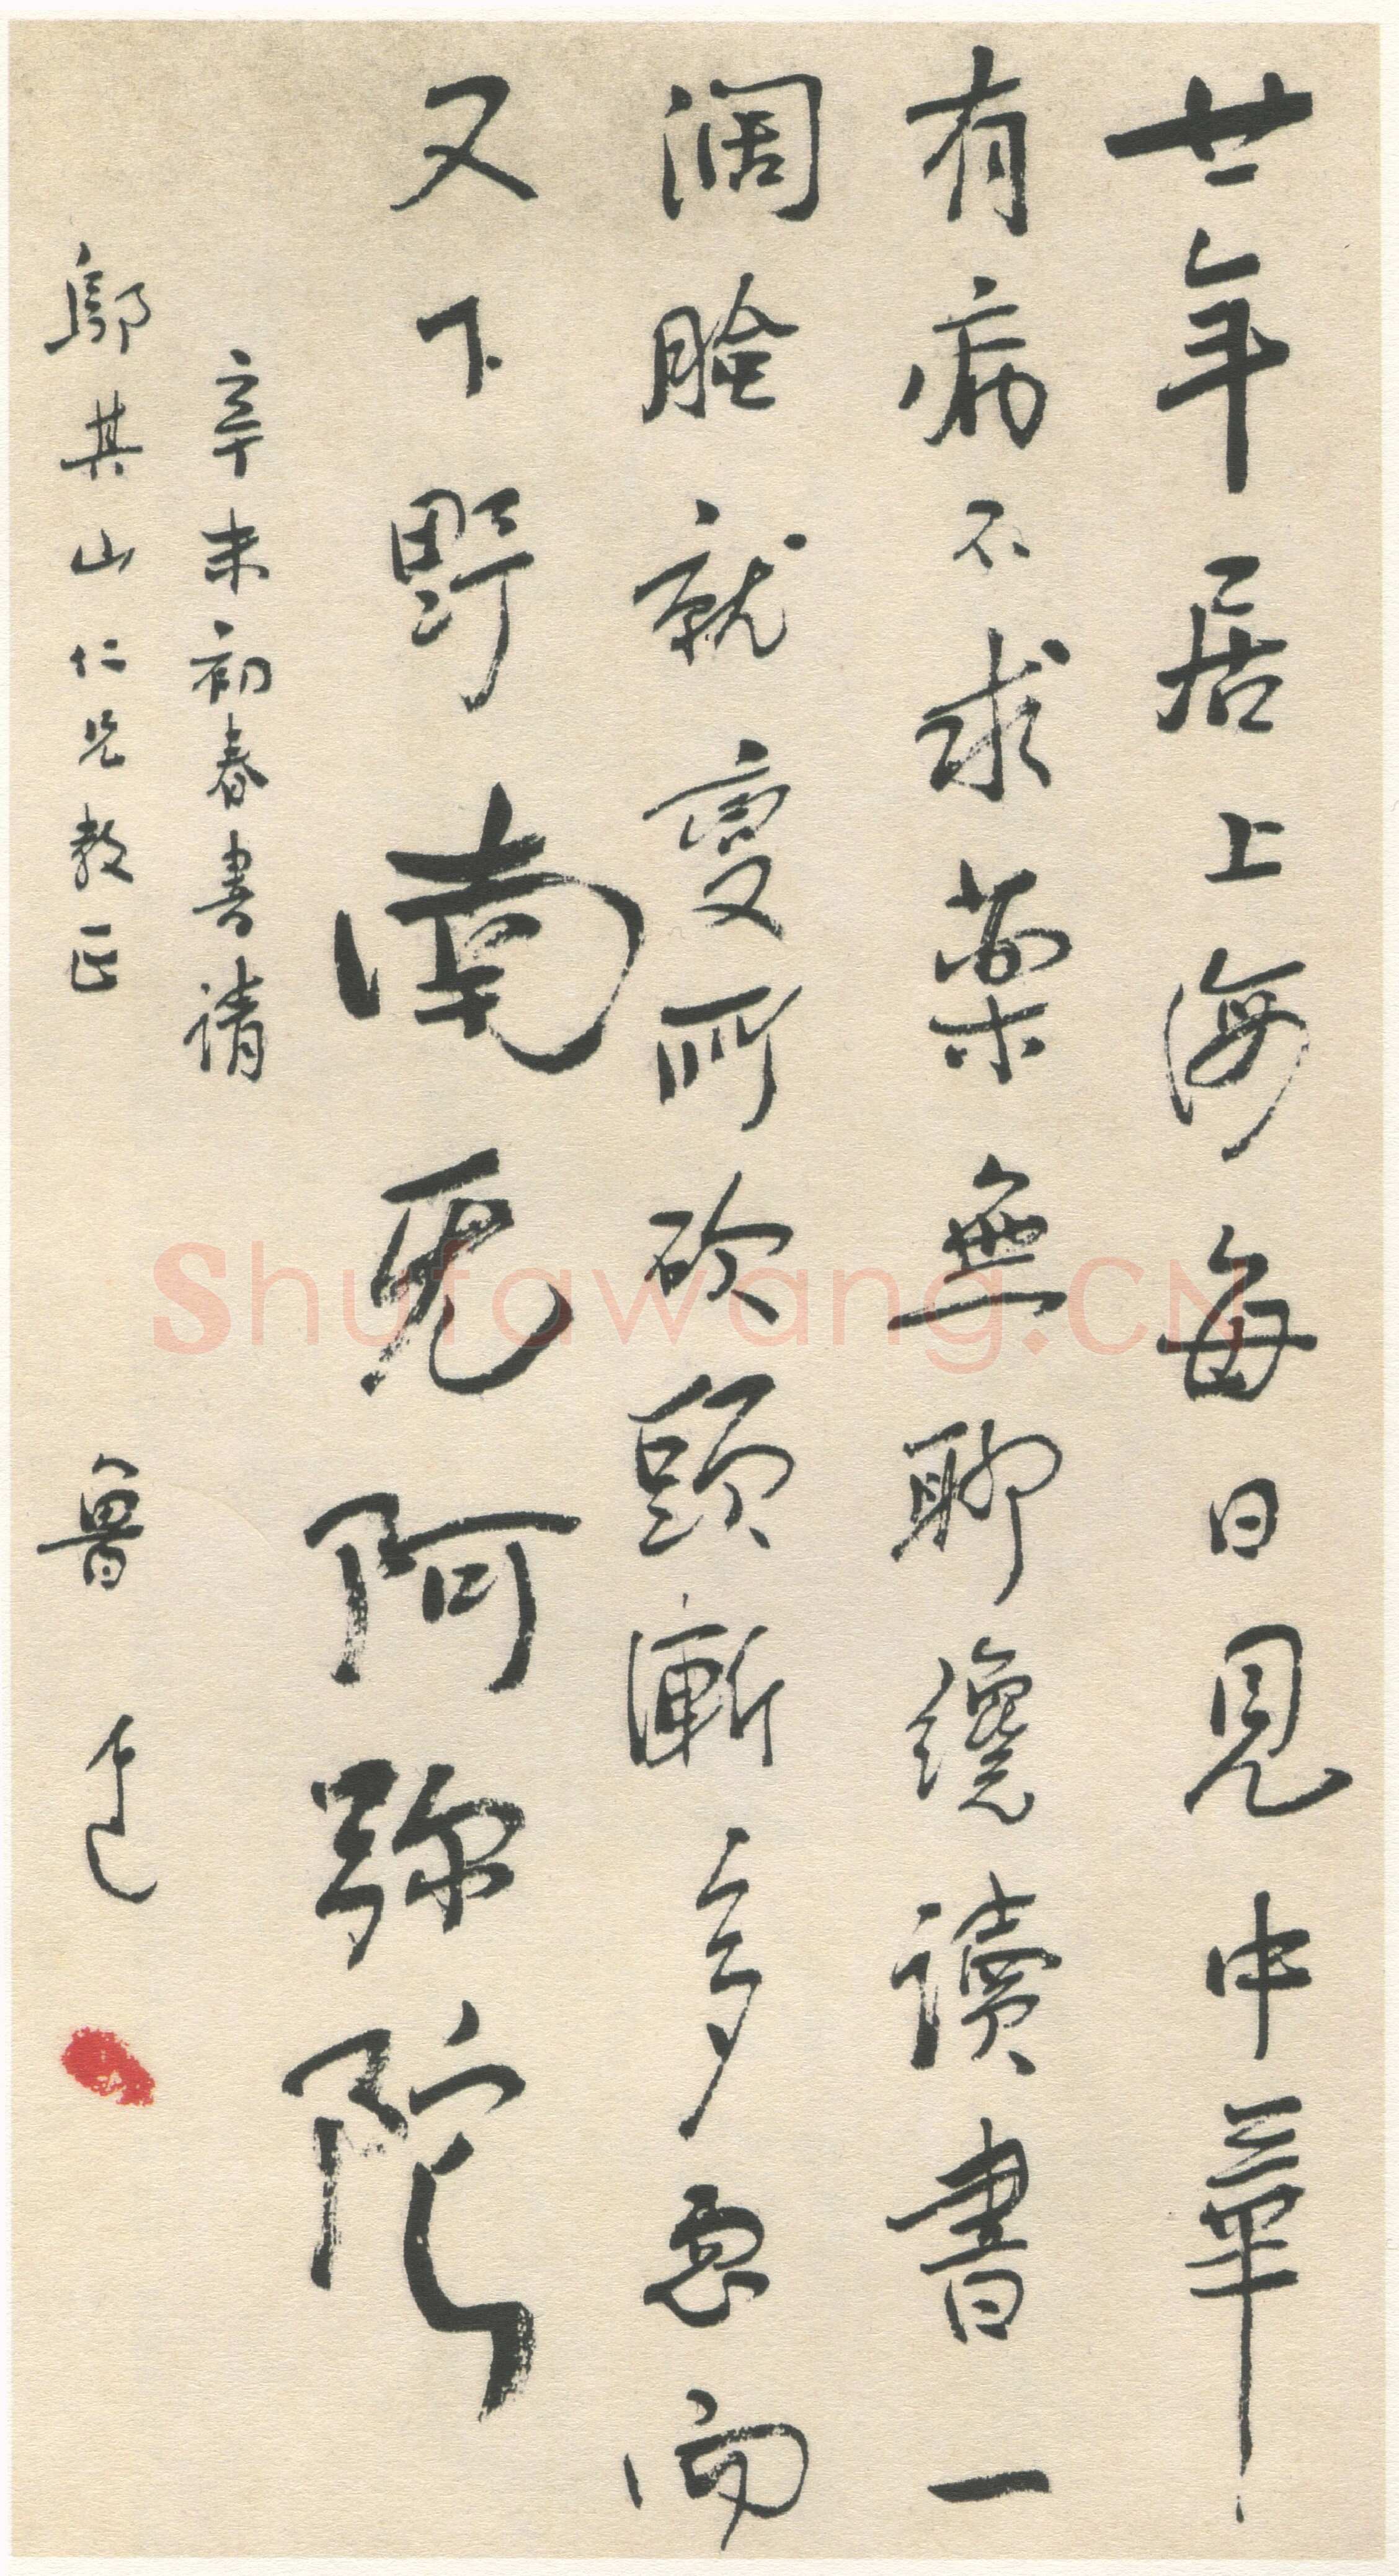 廿年居上海每日見中華
有病不求藥無聊纔讀書一
闊臉就變所砍頭漸多忽而
又下野南无阿彌陀
辛未初春書請
鄔其山仁兄教正
魯迅
Shufawang.CN